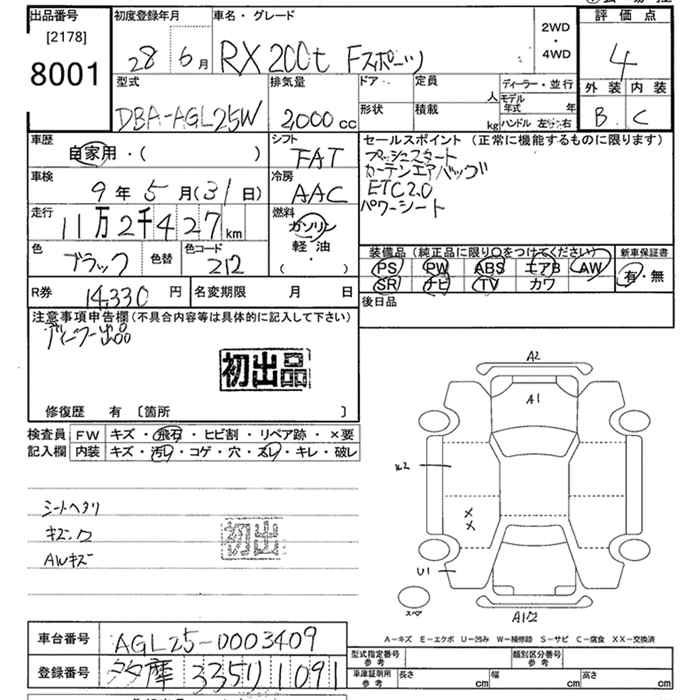 出品番号
[2178]
8001
初度登録年月
28 6月
車名・グレード
RX 200t Fスポーツ
2WD
・
4WD
評価点
4
外装 内装
B C
型式
DBA-AGL25W
排気量
2,000 cc
ドア
定員
人
形状
積載
kg
ディーラー・並行
モデル年式 年
ハンドル 左・右
車歴
自家用・( )
シフト
FAT
車検
9年5月(31日)
冷房
AAC
走行
11万2千427km
燃料
ガソリン
軽・油
・( )
色
ブラック
色替
色コード
212
R券
14,330円
名変期限 月 日
セールスポイント(正常に機能するものに限ります)
プッシュスタート
カーテンエアバッグ
ETC2.0
パワーシート
装備品(純正品に限り〇をつけてください)
PS PW ABS エアB AW
SR ナビ TV カワ
新車保証書
有・無
後日品
注意事項申告欄(不具合内容等は具体的に記入して下さい)
ディーラー出品
初出品
修復歴 有 [箇所 ]
検査員記入欄
FW キズ・飛石・ヒビ割・リペア跡・×要
内装 キズ・汚レ・コゲ・穴・スレ・キレ・破レ
シートヘタリ
AWキズ
初出
A2
A1
U1
スペア
A-キズ E-エクボ U-凹み W-補修跡 S-サビ C-腐食 XX-交換済
車台番号
AGL25-0003409
登録番号
多摩 335 1091
型式指定番号
参考
類別区分番号
参考
車庫証明用
参考
長さ cm
幅 cm
高さ cm